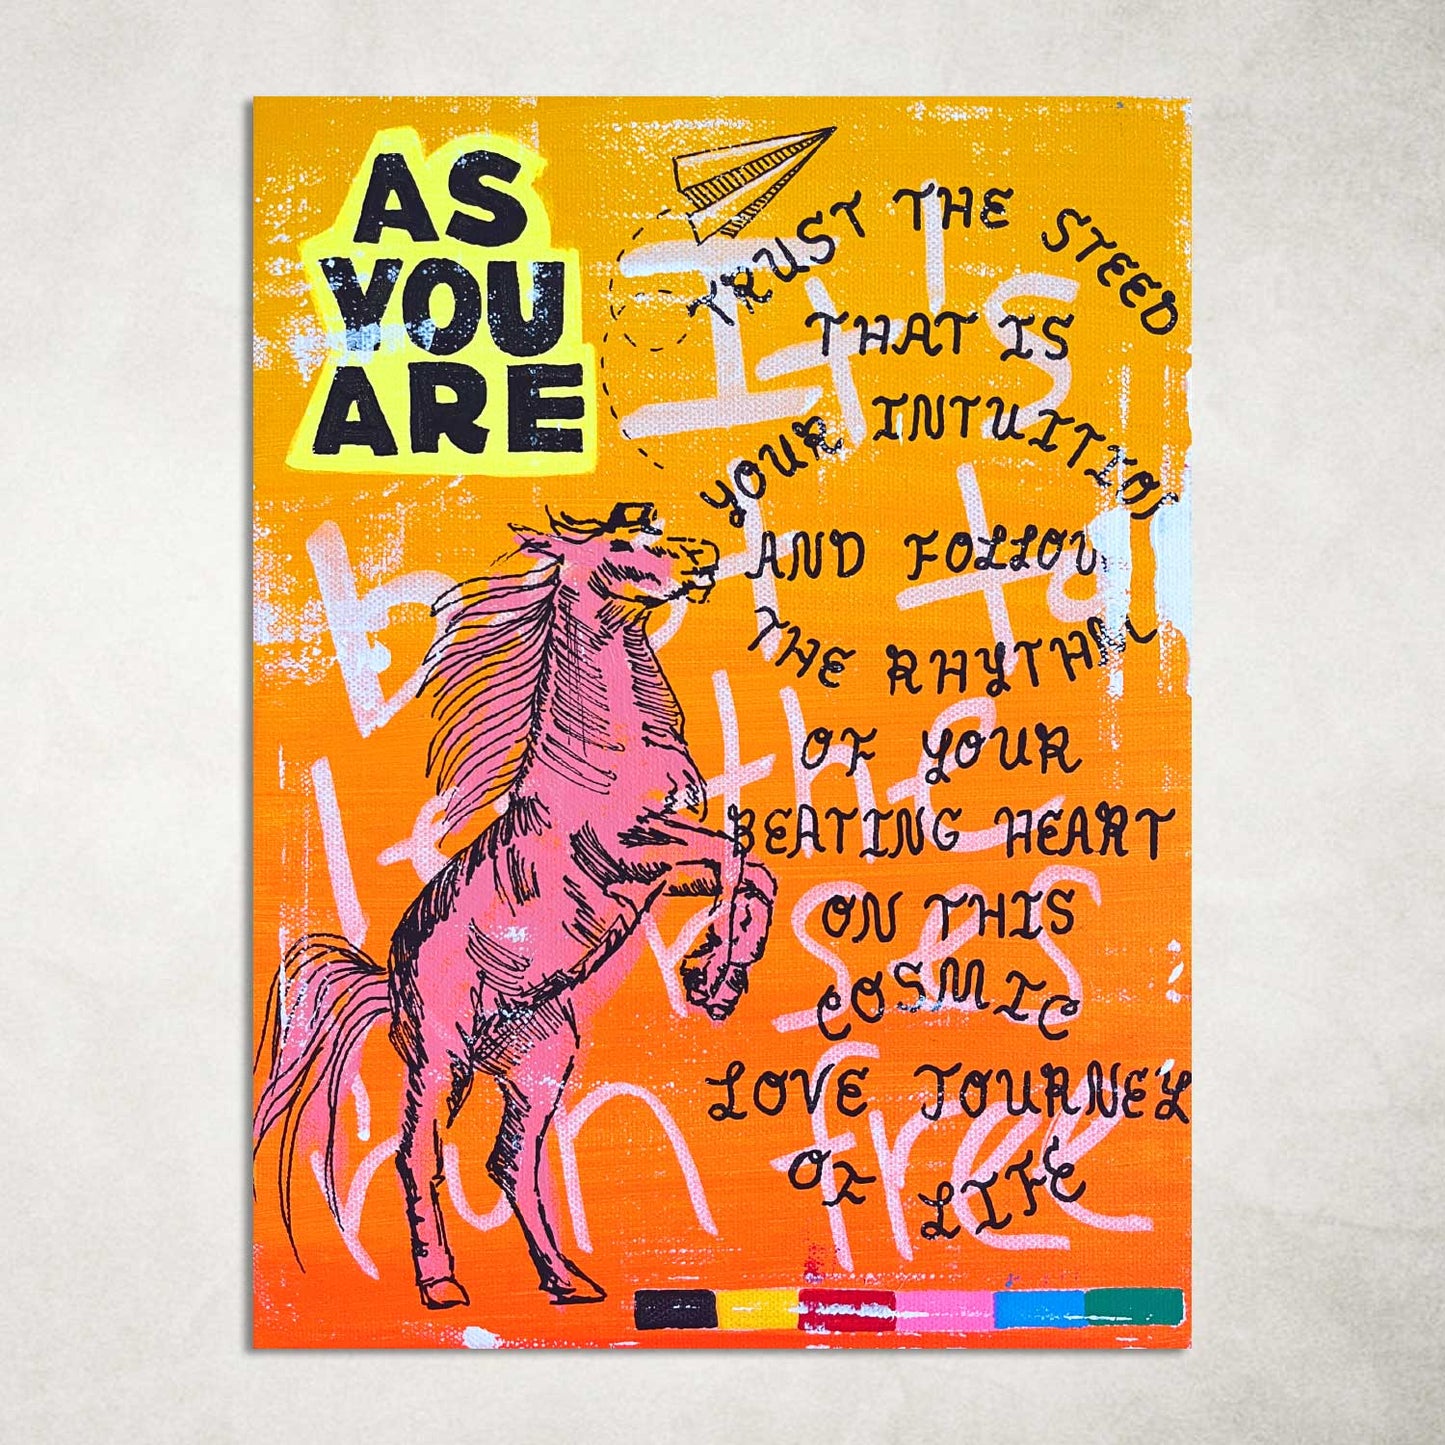 AS
YOU
ARE
TRUST THE STEED
THAT IS
YOUR INTUITION
AND FOLLOW
THE RHYTHM
OF YOUR
BEATING HEART
ON THIS
COSMIC
LOVE JOURNEY
OF LIFE
It's
the
run free